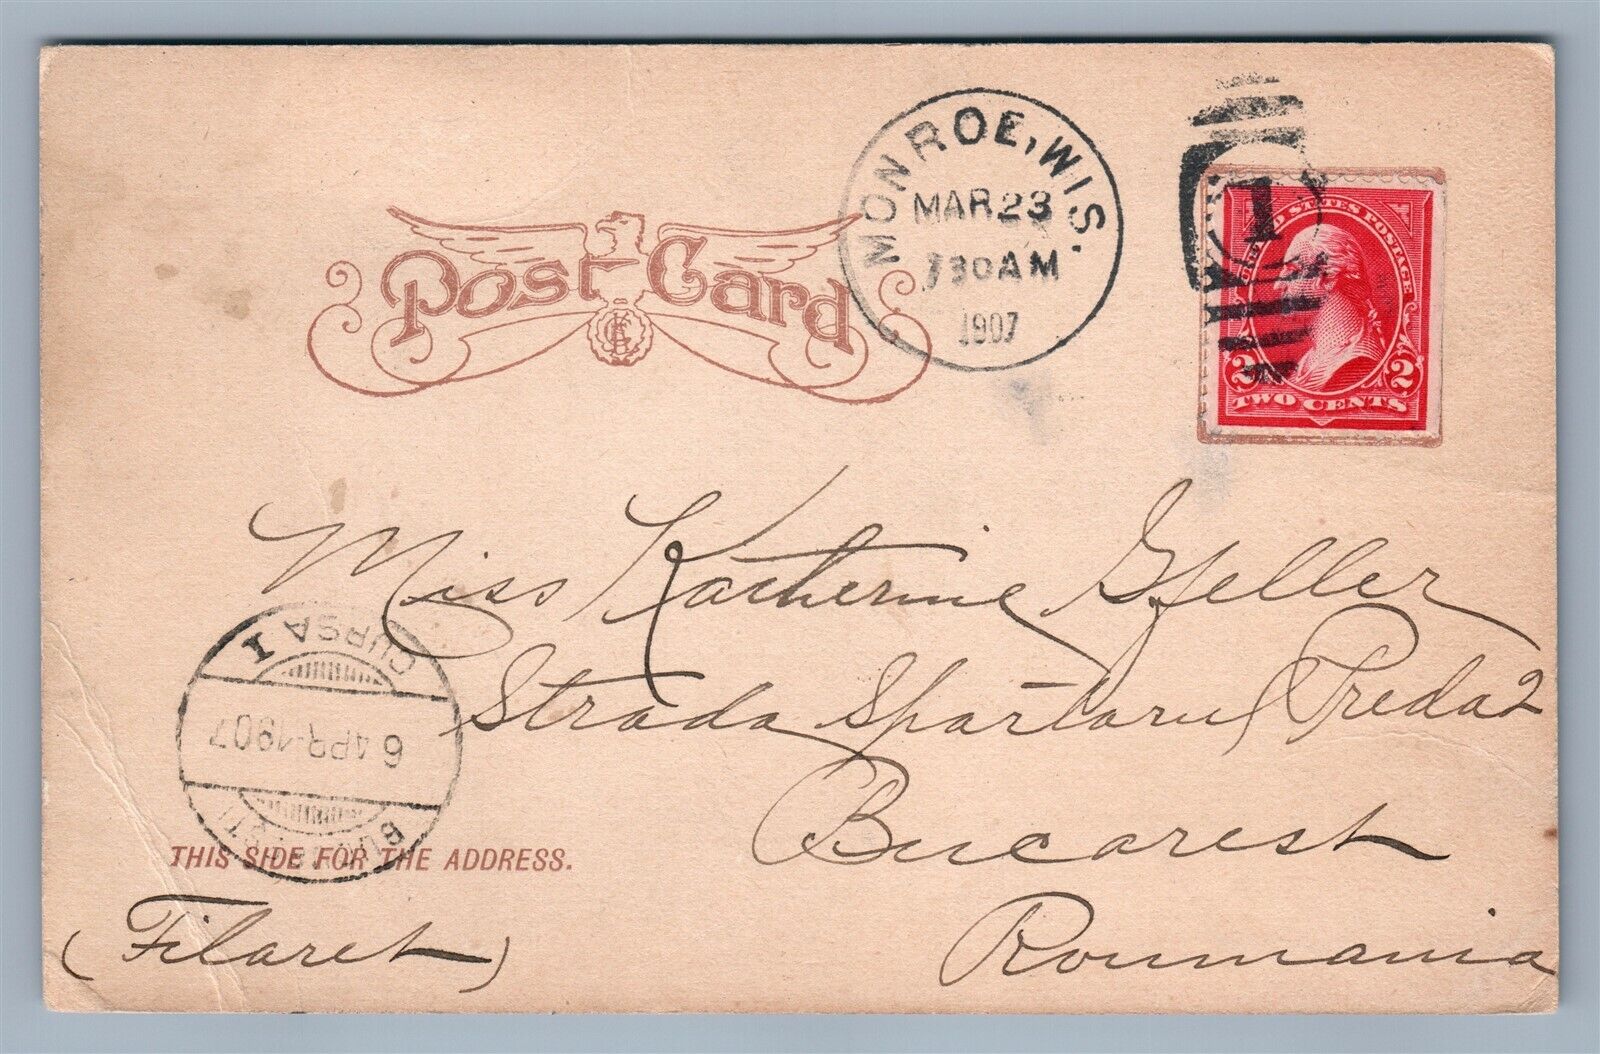 Post Card
MONROE, WIS.
MAR 23
730 AM
1907
1
UNITED STATES POSTAGE
2 2
TWO CENTS
Miss Katherine Gfeller
Strada Spartaru Preda 2
Bucarest
Roumania
(Filaret)
THIS SIDE FOR THE ADDRESS.
CURSA I
6 APR. 1907